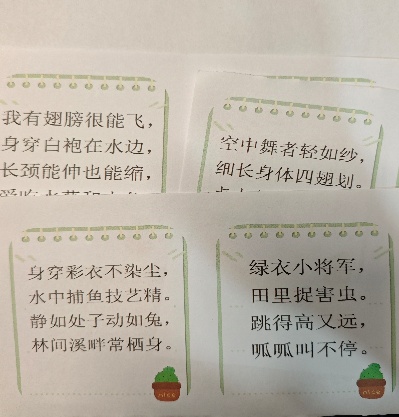 我有翅膀很能飞，
身穿白袍在水边，
长颈能伸也能缩，
空中舞者轻如纱，
细长身体四翅划。
身穿彩衣不染尘，
水中捕鱼技艺精。
静如处子动如兔，
林间溪畔常栖身。
nice
绿衣小将军，
田里捉害虫。
跳得高又远，
呱呱叫不停。
nice